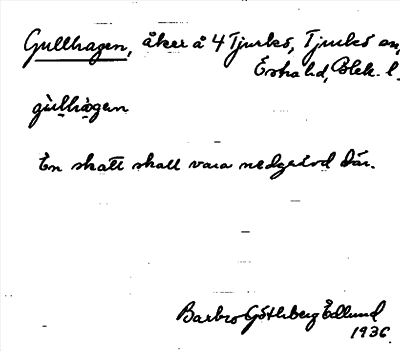 Gullhagen, åker å 4 Tjurkö, Tjurkö sn,
Östra hd, Blek. l.
gu̇llha̱gen
En skatt skall vara nedgrävd där.
Barbro Göthberg Edlund
1936